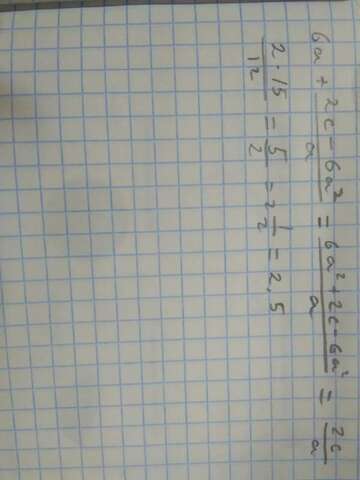 6a + (2c - 6a²)/a = (6a² + 2c - 6a²)/a = 2c/a
(2 · 15)/12 = 5/2 = 2 1/2 = 2,5